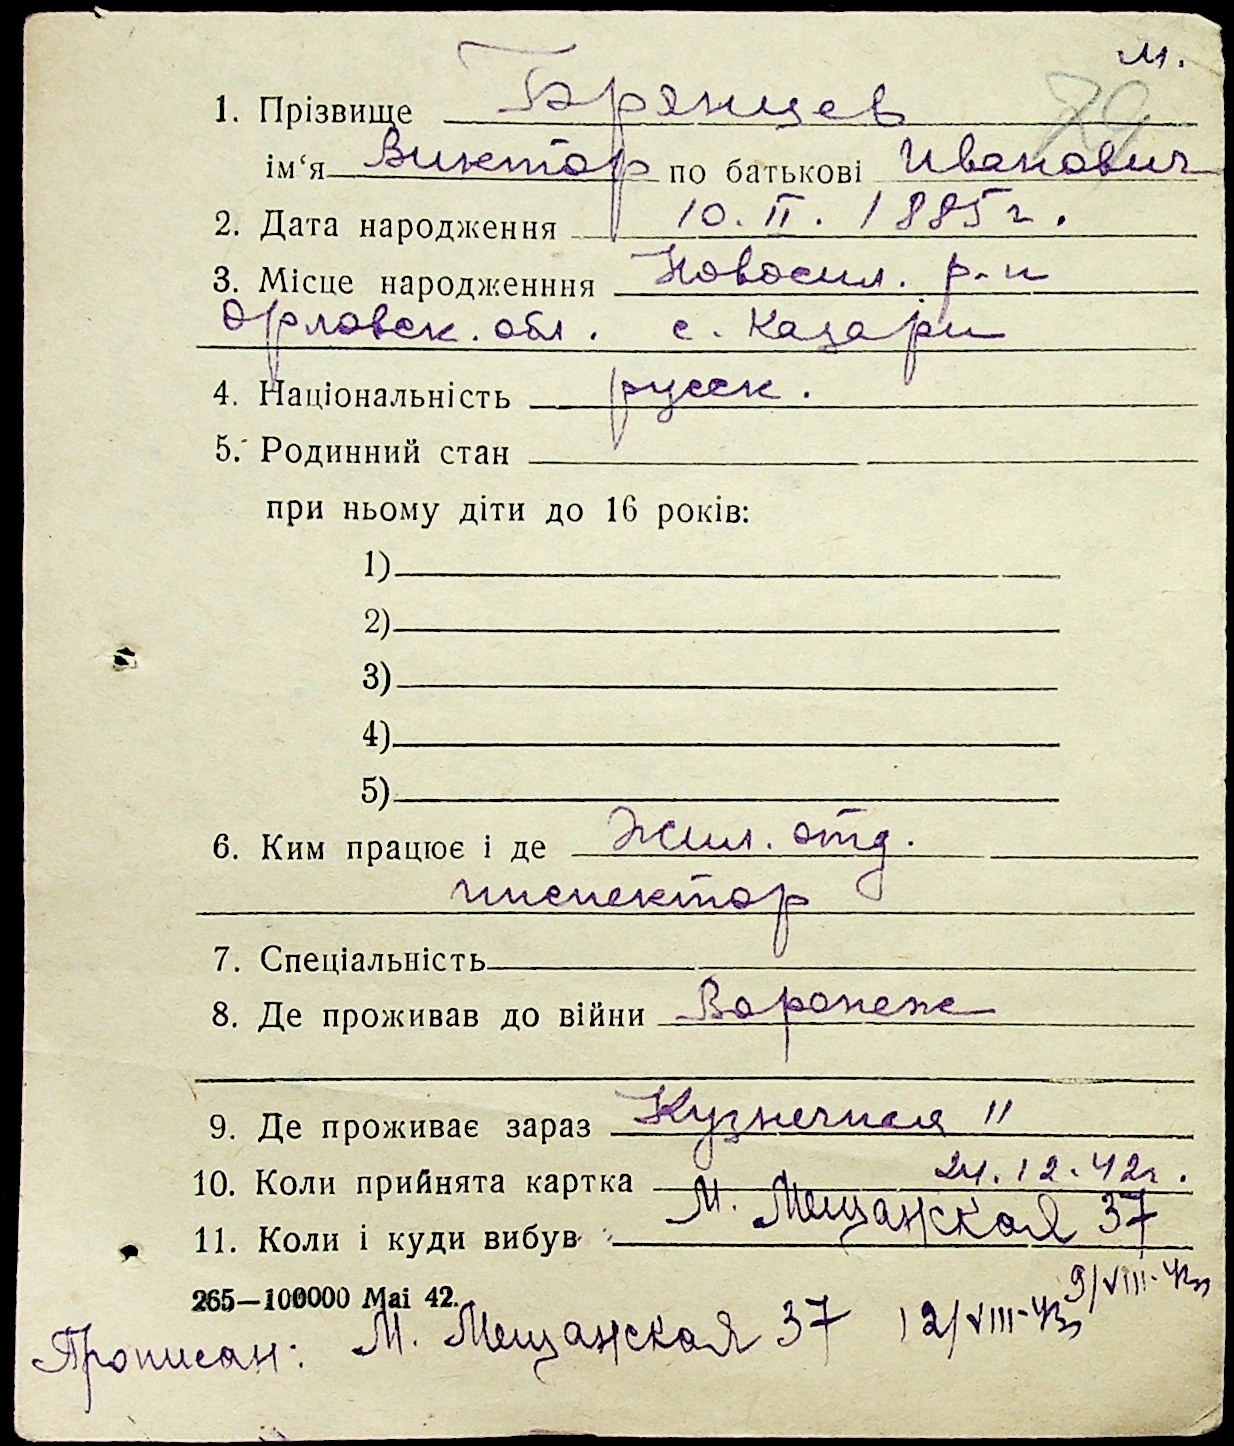 м.
29
1. Прізвище Брянцев
ім‘я Виктор по батькові Иванович
2. Дата народження 10. II. 1885 г.
3. Місце народженння Новосил. р-н
Орловск. обл. с. Казари
4. Національність русск.
5. Родинний стан
при ньому діти до 16 років:
1)
2)
3)
4)
5)
6. Ким працює і де Жил. отд.
инспектор
7. Спеціальність
8. Де проживав до війни Воронеж
9. Де проживає зараз Кузнечная 11
10. Коли прийнята картка 24. 12. 42 г.
11. Коли і куди вибув М. Мещанская 37
9/VIII-43
265—100000 Маі 42.
Прописан: М. Мещанская 37 12/VIII-43